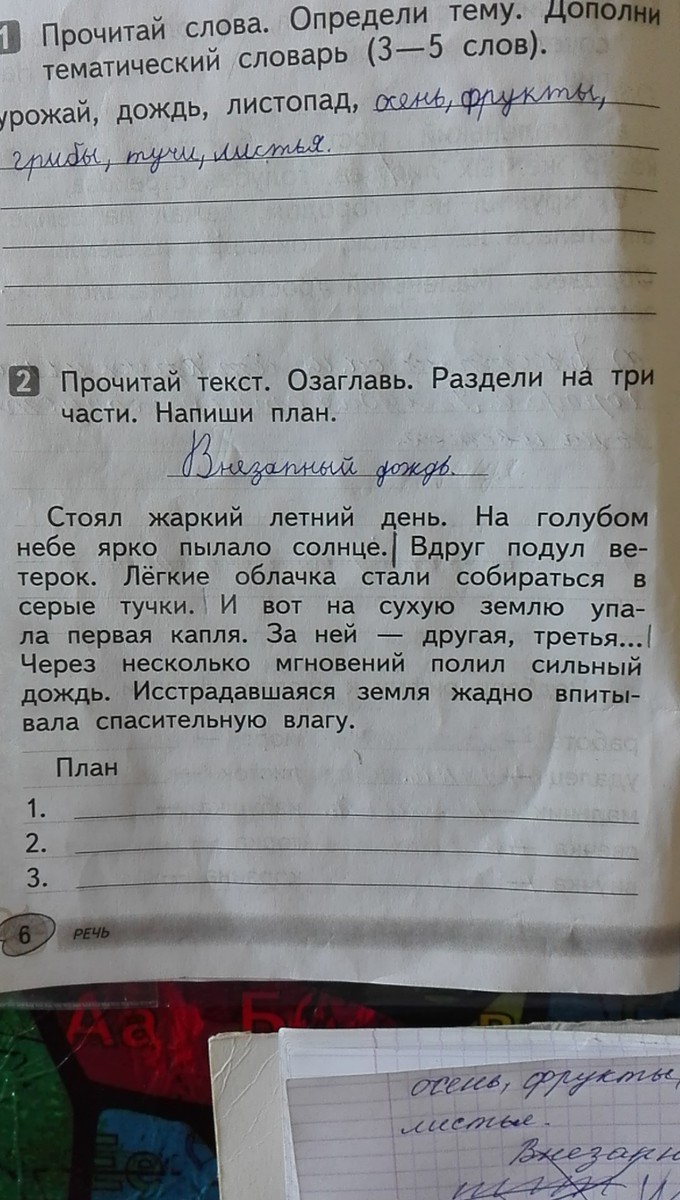 1 Прочитай слова. Определи тему. Дополни
тематический словарь (3—5 слов).
урожай, дождь, листопад, осень, фрукты,
грибы, тучи, листья.
2 Прочитай текст. Озаглавь. Раздели на три
части. Напиши план.
Внезапный дождь.
Стоял жаркий летний день. На голубом
небе ярко пылало солнце.| Вдруг подул ве-
терок. Лёгкие облачка стали собираться в
серые тучки. | И вот на сухую землю упа-
ла первая капля. За ней — другая, третья...|
Через несколько мгновений полил сильный
дождь. Исстрадавшаяся земля жадно впиты-
вала спасительную влагу.
План
1.
2.
3.
6 РЕЧЬ
Аа Б
осень, фрукты,
листья.
Внезапн